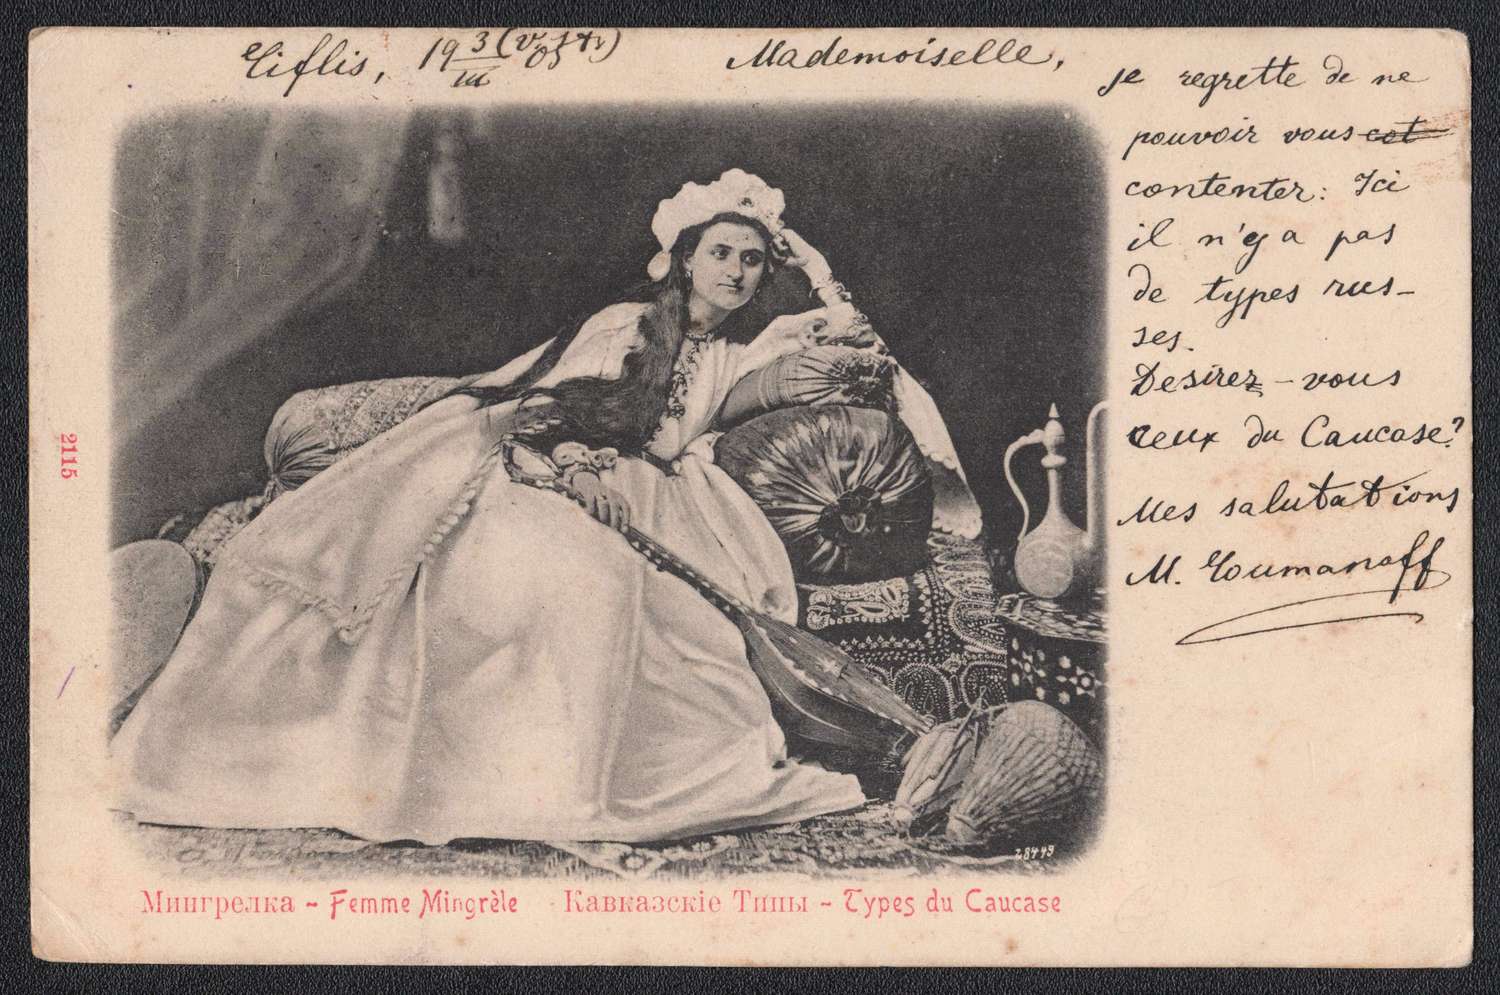 Tiflis, 19 3/III 05 (v. st.)
Mademoiselle,
je regrette de ne
pouvoir vous cot
contenter: Ici
il n'y a pas
de types rus-
ses.
Desirez-vous
ceux du Caucase?
Mes salutations
M. Toumanoff
2115
28449
Мингрелка - Femme Mingrèle Кавказскіе Типы - Types du Caucase